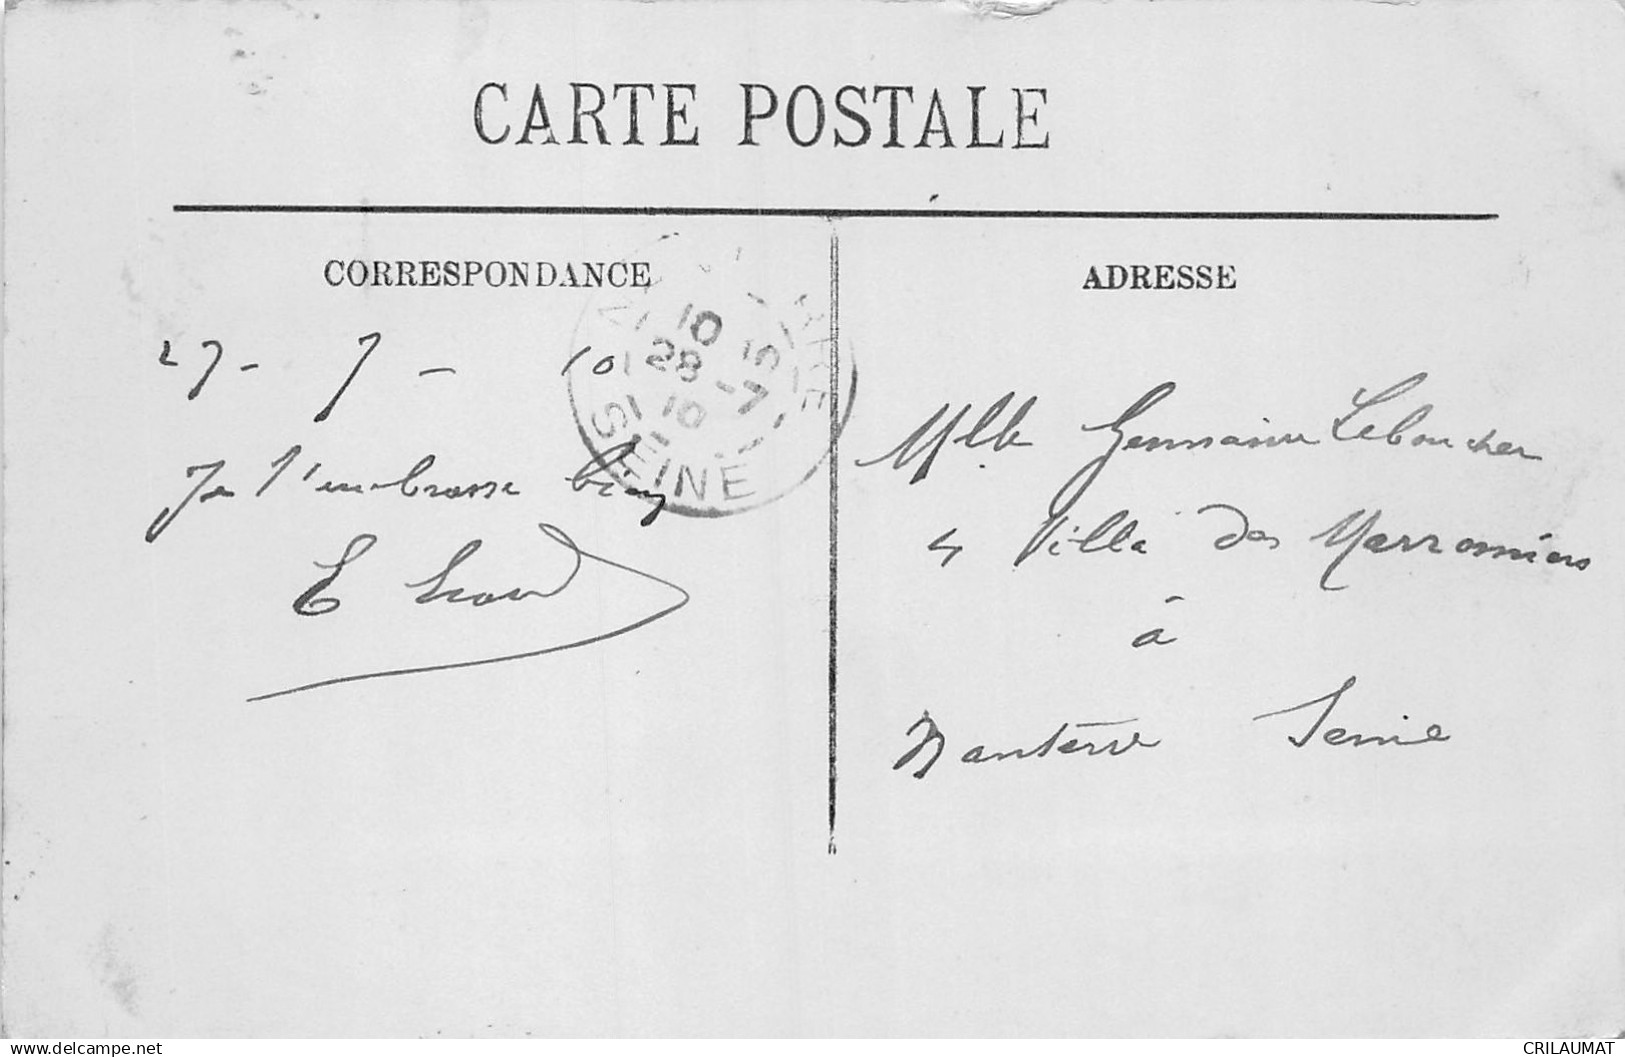 CARTE POSTALE
CORRESPONDANCE
27 - 7 - 10
Je t'embrasse bien
E
10 15
28 - 7
10
SEINE
ADRESSE
Mlle Germaine Leboucher
4 Villa des Marronniers
à
Nanterre Seine
www.delcampe.net
CRILAUMAT